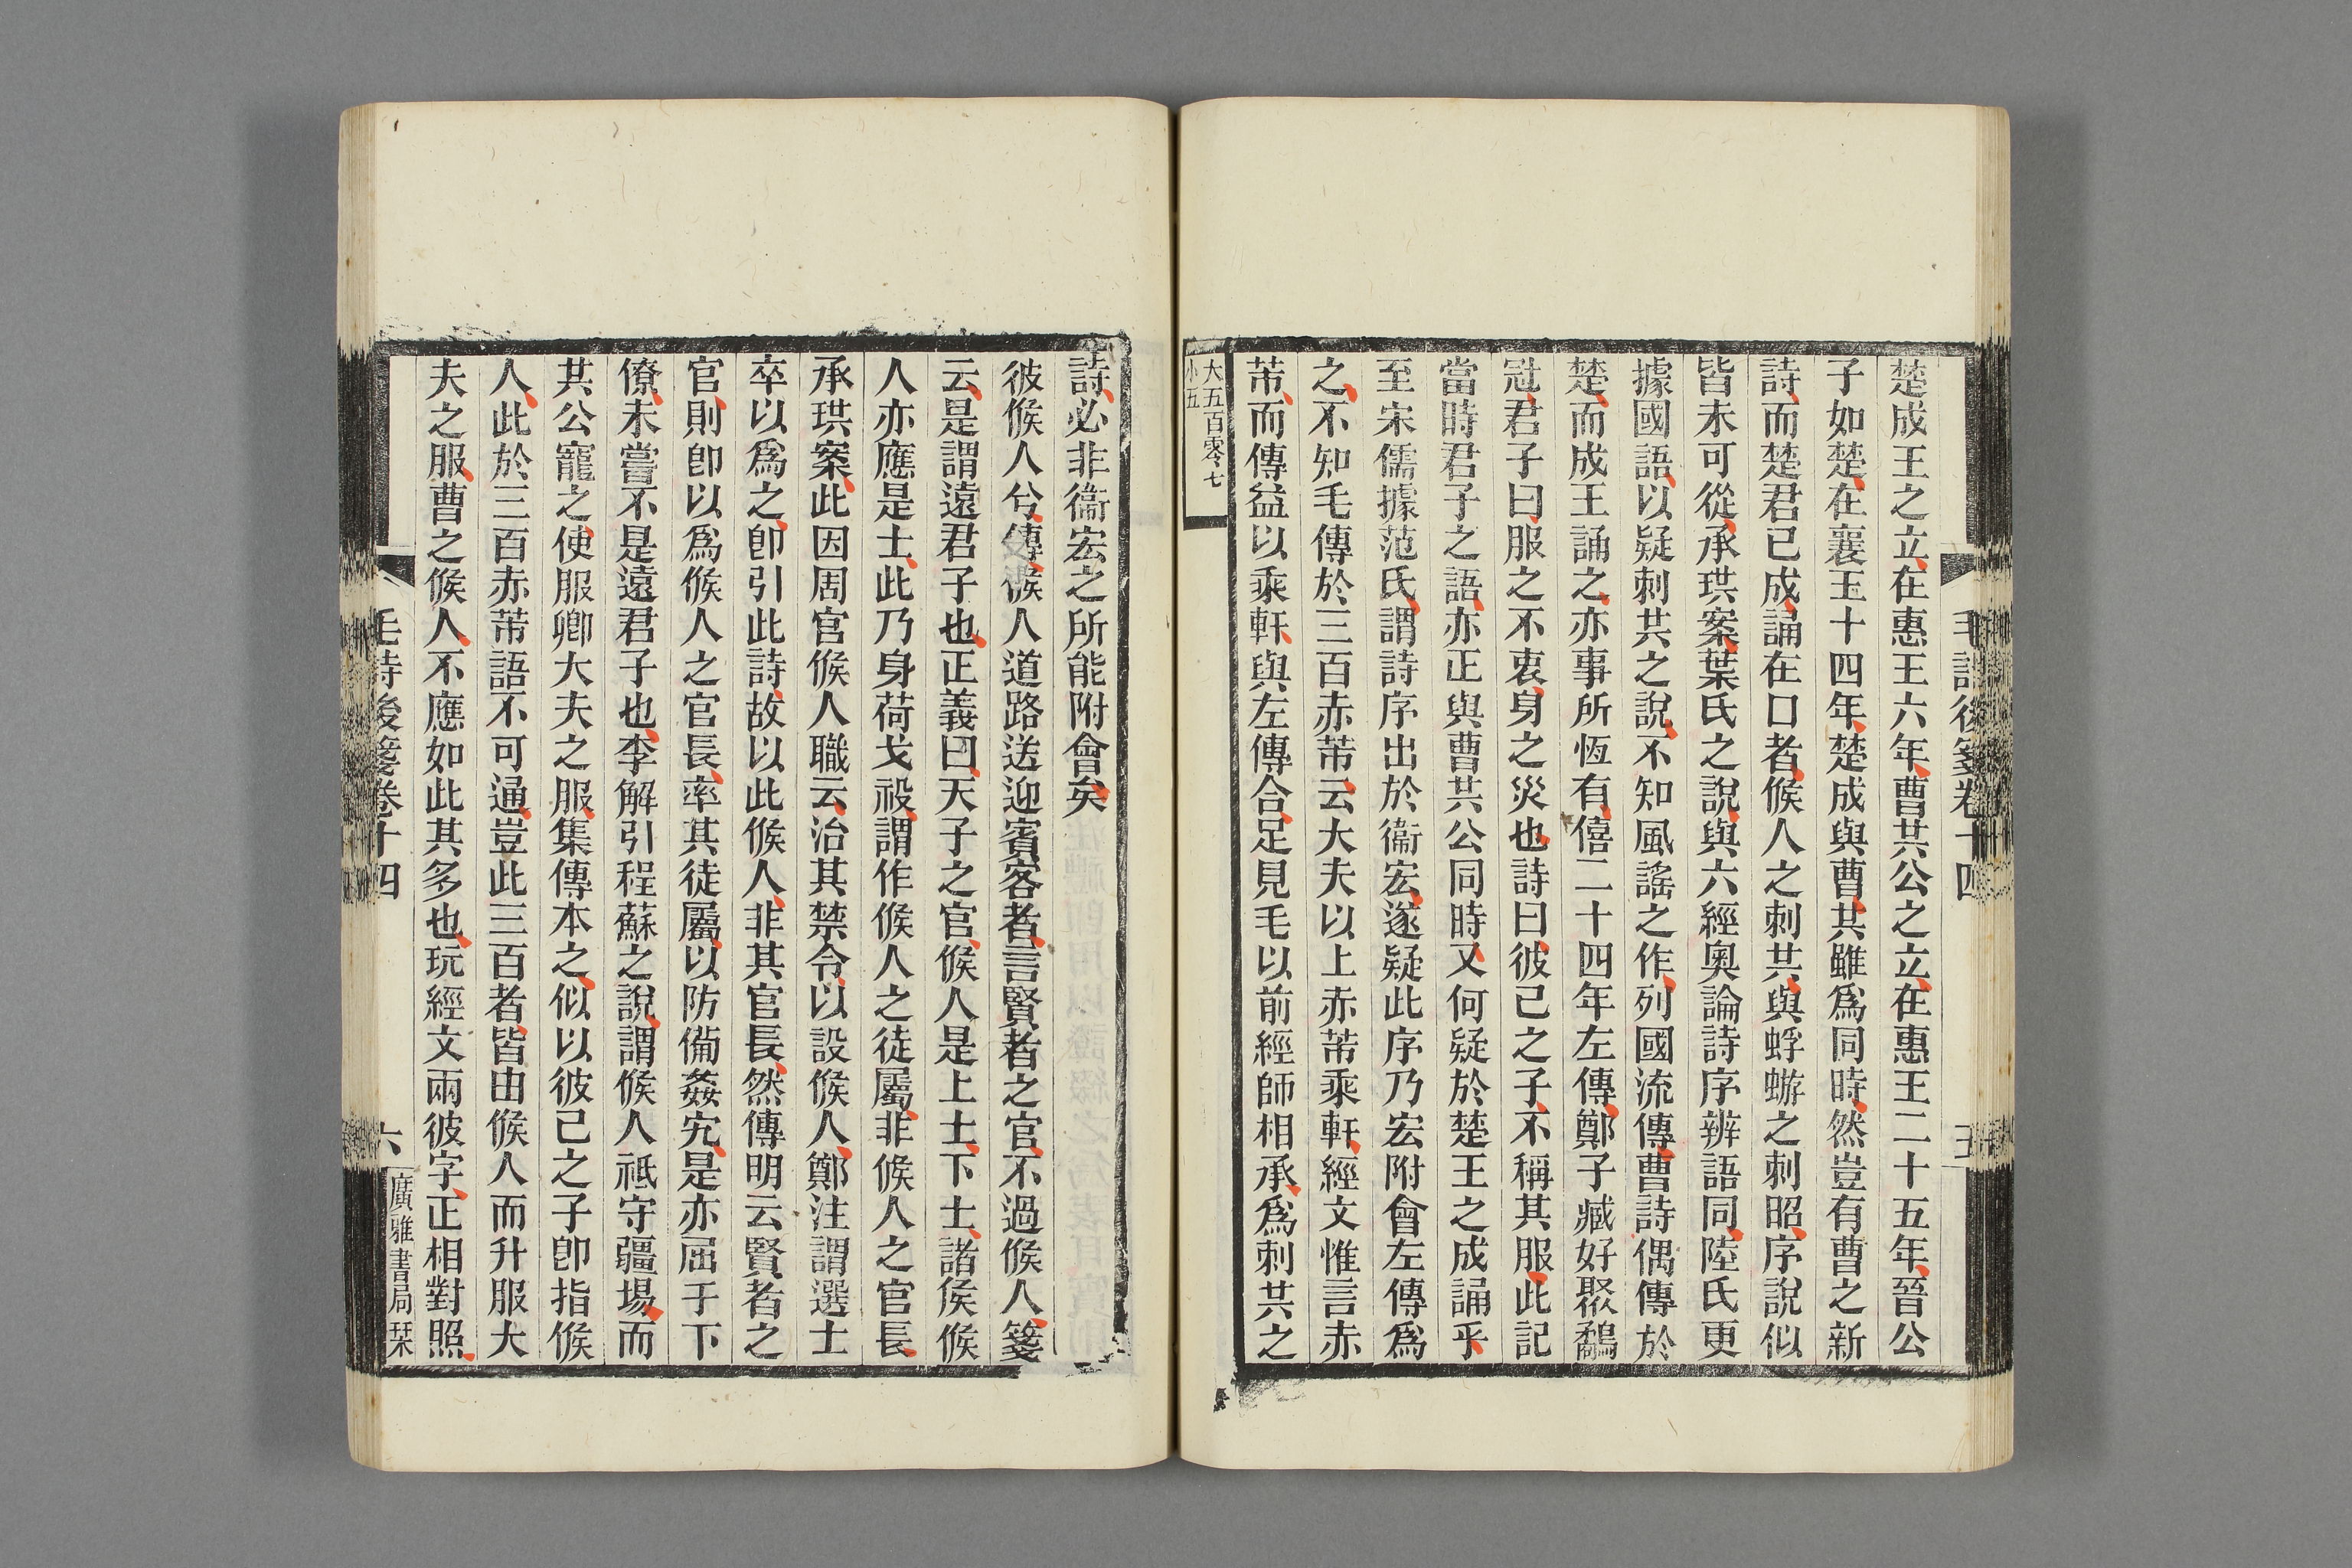 毛詩後箋卷十四
五
楚成王之立在惠王六年曹共公之立在惠王二十五年晉公
子如楚在襄王十四年楚成與曹共雖爲同時然豈有曹之新
詩而楚君已成誦在口者候人之刺共與蜉蝣之刺昭序說似
皆未可從承珙案葉氏之說與六經奧論詩序辨語同陸氏更
據國語以疑刺共之說不知風謠之作列國流傳曹詩偶傳於
楚而成王誦之亦事所恆有僖二十四年左傳鄭子臧好聚鷸
冠君子曰服之不衷身之災也詩曰彼己之子不稱其服此記
當時君子之語亦正與曹共公同時又何疑於楚王之成誦乎
至宋儒據范氏謂詩序出於衞宏遂疑此序乃宏附會左傳爲
之不知毛傳於三百赤芾云大夫以上赤芾乘軒經文惟言赤
芾而傳益以乘軒與左傳合足見毛以前經師相承爲刺共之
大五百零七
小五
詩必非衞宏之所能附會矣
彼候人兮傳候人道路送迎賓客者言賢者之官不過候人箋
云是謂遠君子也正義曰天子之官候人是上士下士諸侯候
人亦應是士此乃身荷戈祋謂作候人之徒屬非候人之官長
承珙案此因周官候人職云治其禁令以設候人鄭注謂選士
卒以爲之卽引此詩故以此候人非其官長然傳明云賢者之
官則卽以爲候人之官長率其徒屬以防備姦宄是亦屈于下
僚未嘗不是遠君子也李解引程蘇之說謂候人祗守疆場而
共公寵之使服卿大夫之服集傳本之似以彼己之子卽指候
人此於三百赤芾語不可通豈此三百者皆由候人而升服大
夫之服曹之候人不應如此其多也玩經文兩彼字正相對照
毛詩後箋卷十四
六
廣雅書局栞